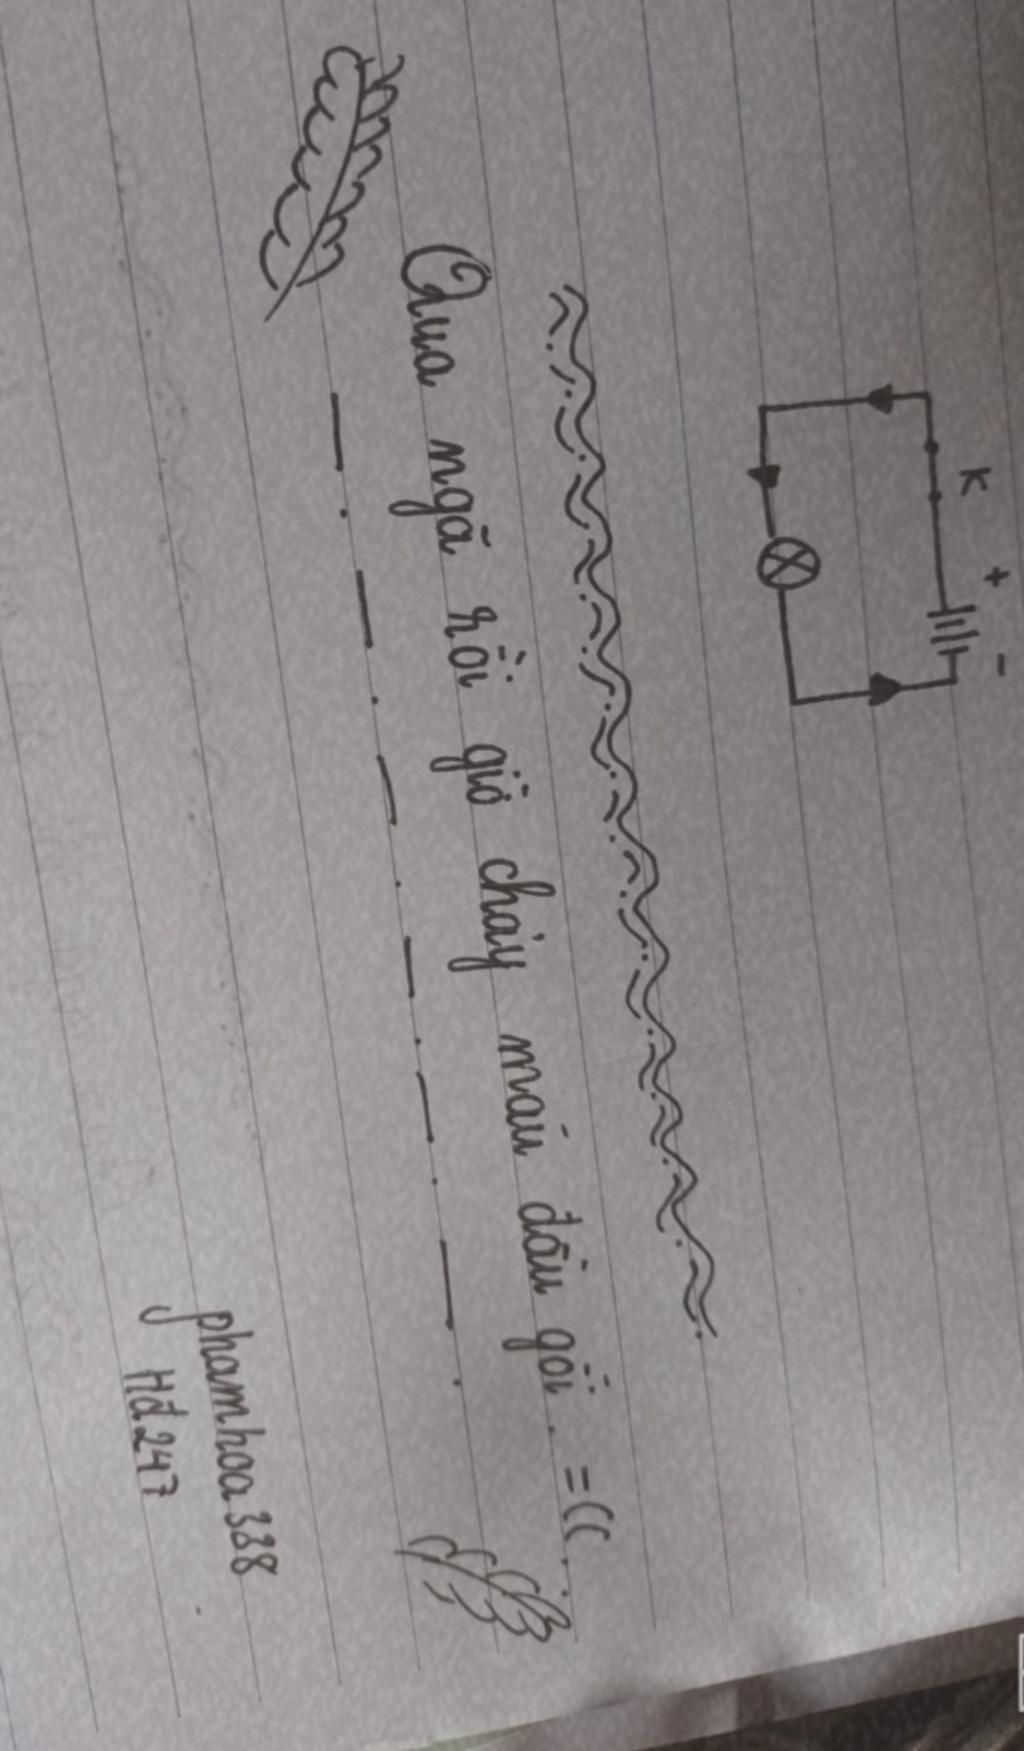 K
+ -
Qua ngã rồi giờ chảy máu đầu gối. =((..
phamhoa338
Hđ247